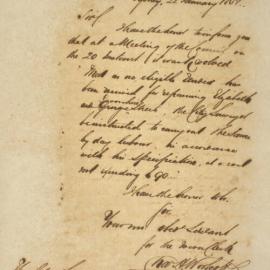 Sydney, 22 January 18
Sir
I have the honor to inform you
that at a Meeting of the Council on
the 20 instant it was resolved
That as no eligible Tender has
been received for repairing Elizabeth
and George Street the City Surveyor
be instructed to carry out the
by day labour in accordance
with his Specification, at a cost
not exceeding £90
I have the honor to be
Sir
Your most obdt Servant
for the Town Clerk